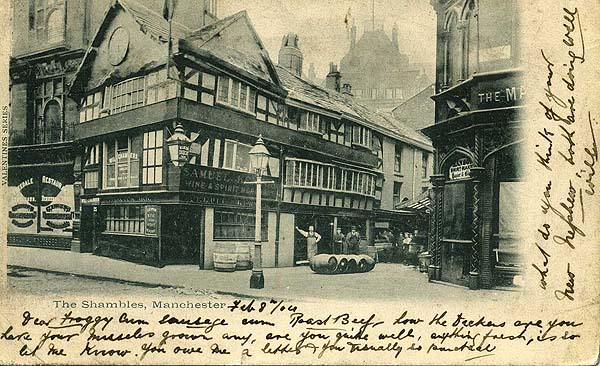 VALENTINES SERIES
RESTAUR
SAMUEL
WINE & SPIRIT ME
THE MA
The Shambles, Manchester Feb 8th/04
Dear Froggy Cum sausage cum Roast Beef, how the Deckens are you
have your muscles grown any, are you quite well, anything fresh, is so
let me know. You owe me a letter & you usually so punctual
what do you think of your
New Nephew both are doing well
will
Feb